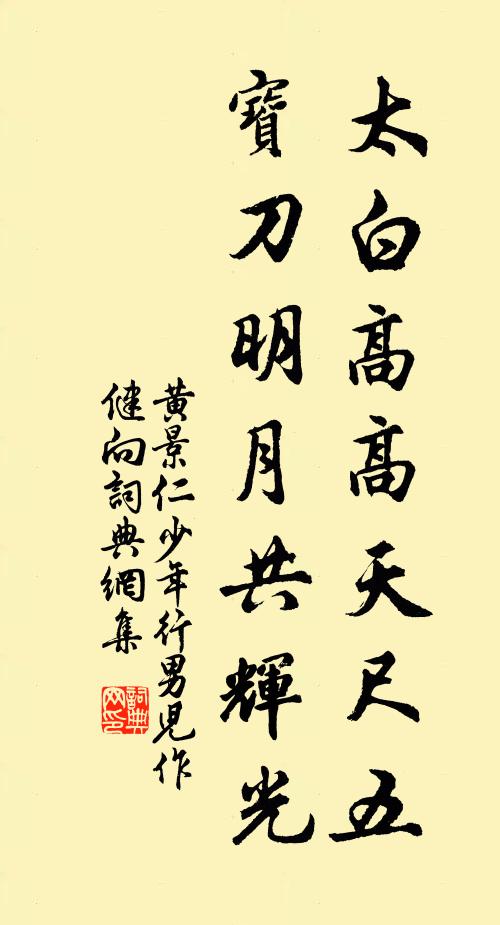 太白高高天尺五
寶刀明月共輝光
黃景仁少年行男児作
健向詞典網集
詞典
网印